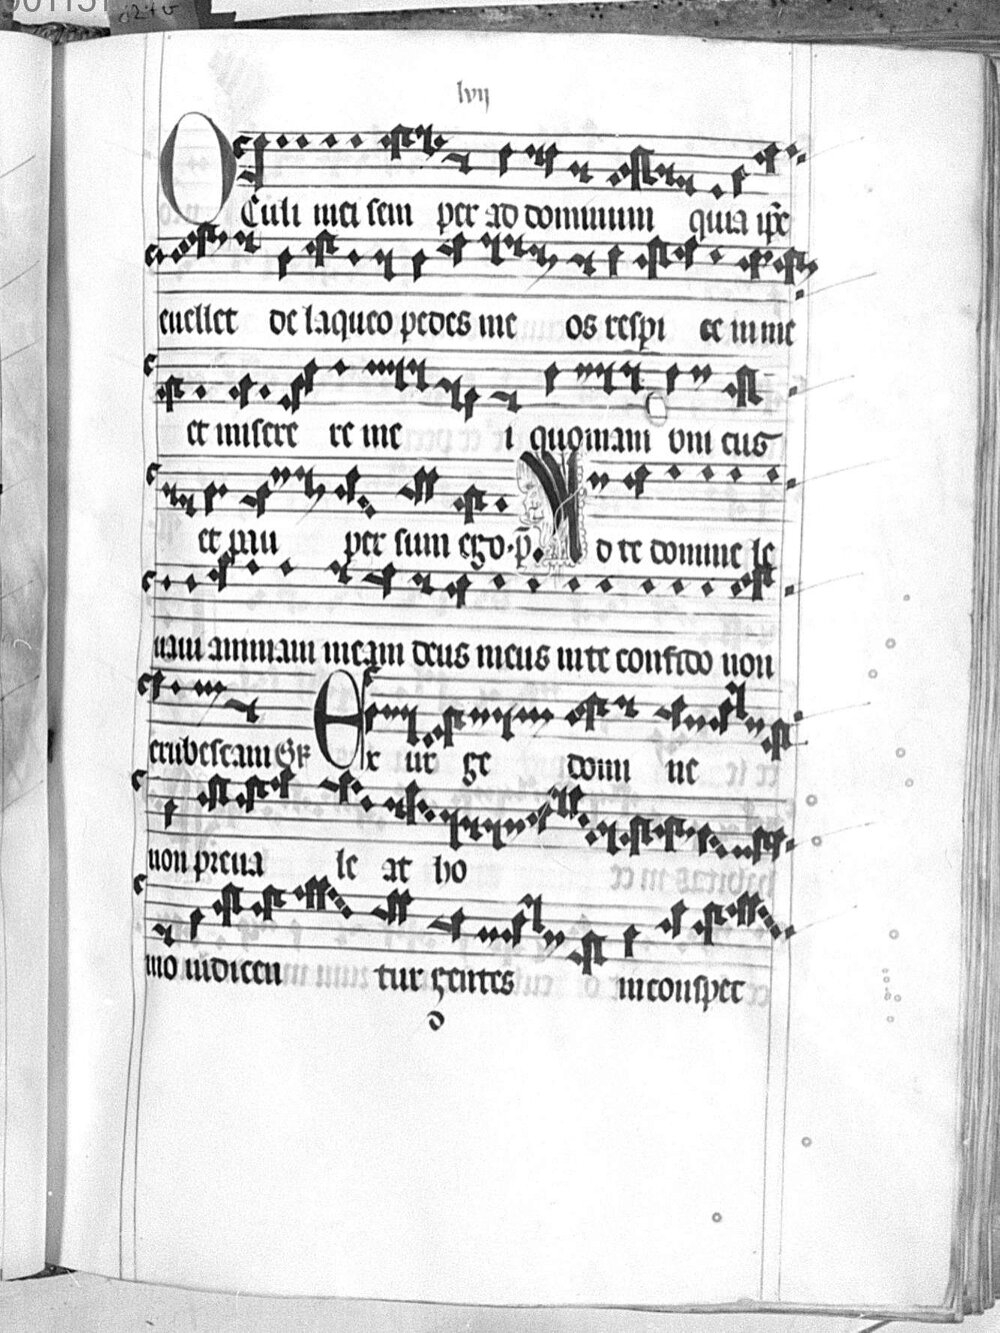 lvij
OCuli mei sem per ad dominum quia ip̄e
euellet de laqueo pedes me os respi ce in me
et misere re me i quoniam vni cus
et pau per sum ego. p̄. Ad te domine le
uaui animam meam deus meus in te confido non
erubescam Gr Ex ur ge domi ne
non preua le at ho
mo iudicen tur gentes in conspec